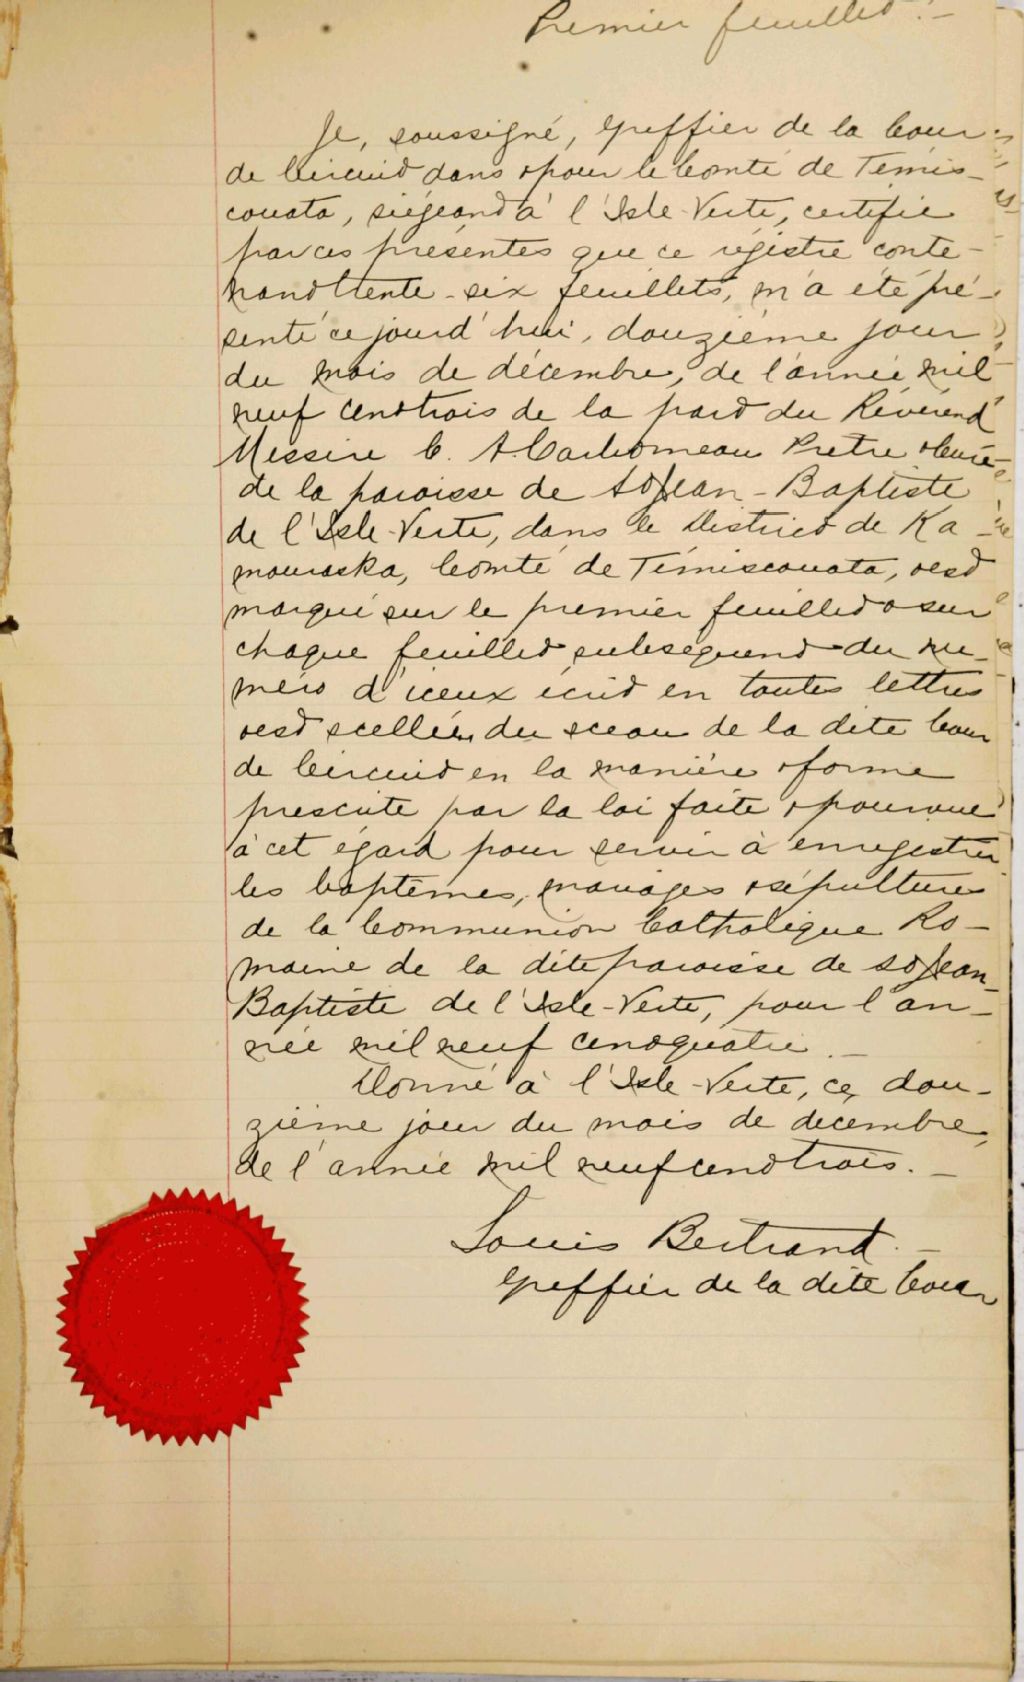 Premier feuillet. -
Je, soussigné, greffier de la Cour
de Circuit dans & pour le Comté de Témis-
couata, siégeant à l'Isle-Verte, certifie
par ces présentes que ce régistre conte-
nant trente-six feuillets, m'a été pré-
senté ce jourd'hui, douzième jour
du mois de décembre, de l'année mil
neuf cent trois de la part du Révérend
Messire C. A. Carbonneau Prêtre & Curé
de la paroisse de St Jean-Baptiste
de l'Isle-Verte, dans le District de Ka-
mouraska, Comté de Témiscouata, & est
marqué sur le premier feuillet & sur
chaque feuillet subséquent du nu-
méro d'iceux écrit en toutes lettres
& est scellée du sceau de la dite Cour
de Circuit en la manière & forme
prescrite par la loi faite & pourvue
à cet égard pour servir à enregistrer
les baptêmes, mariages & sépultures
de la Communion Catholique Ro-
maine de la dite paroisse de St Jean-
Baptiste de l'Isle-Verte, pour l'an-
née mil neuf cent quatre. -
Donné à l'Isle-Verte, ce, dou-
zième jour du mois de decembre,
de l'année mil neuf cent trois. -
Louis Bertrand. -
greffier de la dite Cour